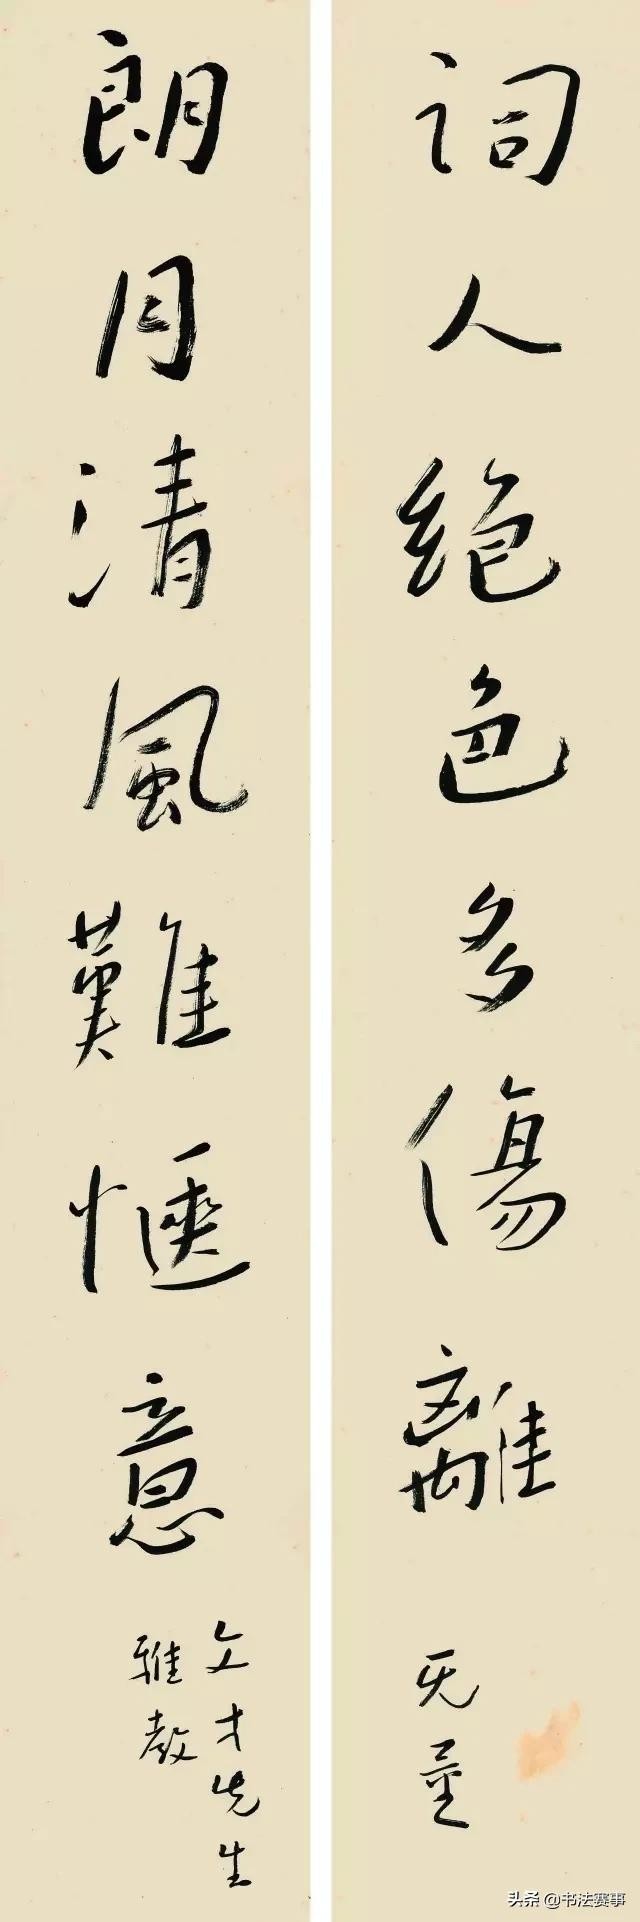 詞人絕色多傷離
无量
朗月清風難愜意
文才先生
雅教
头条 @书法赛事